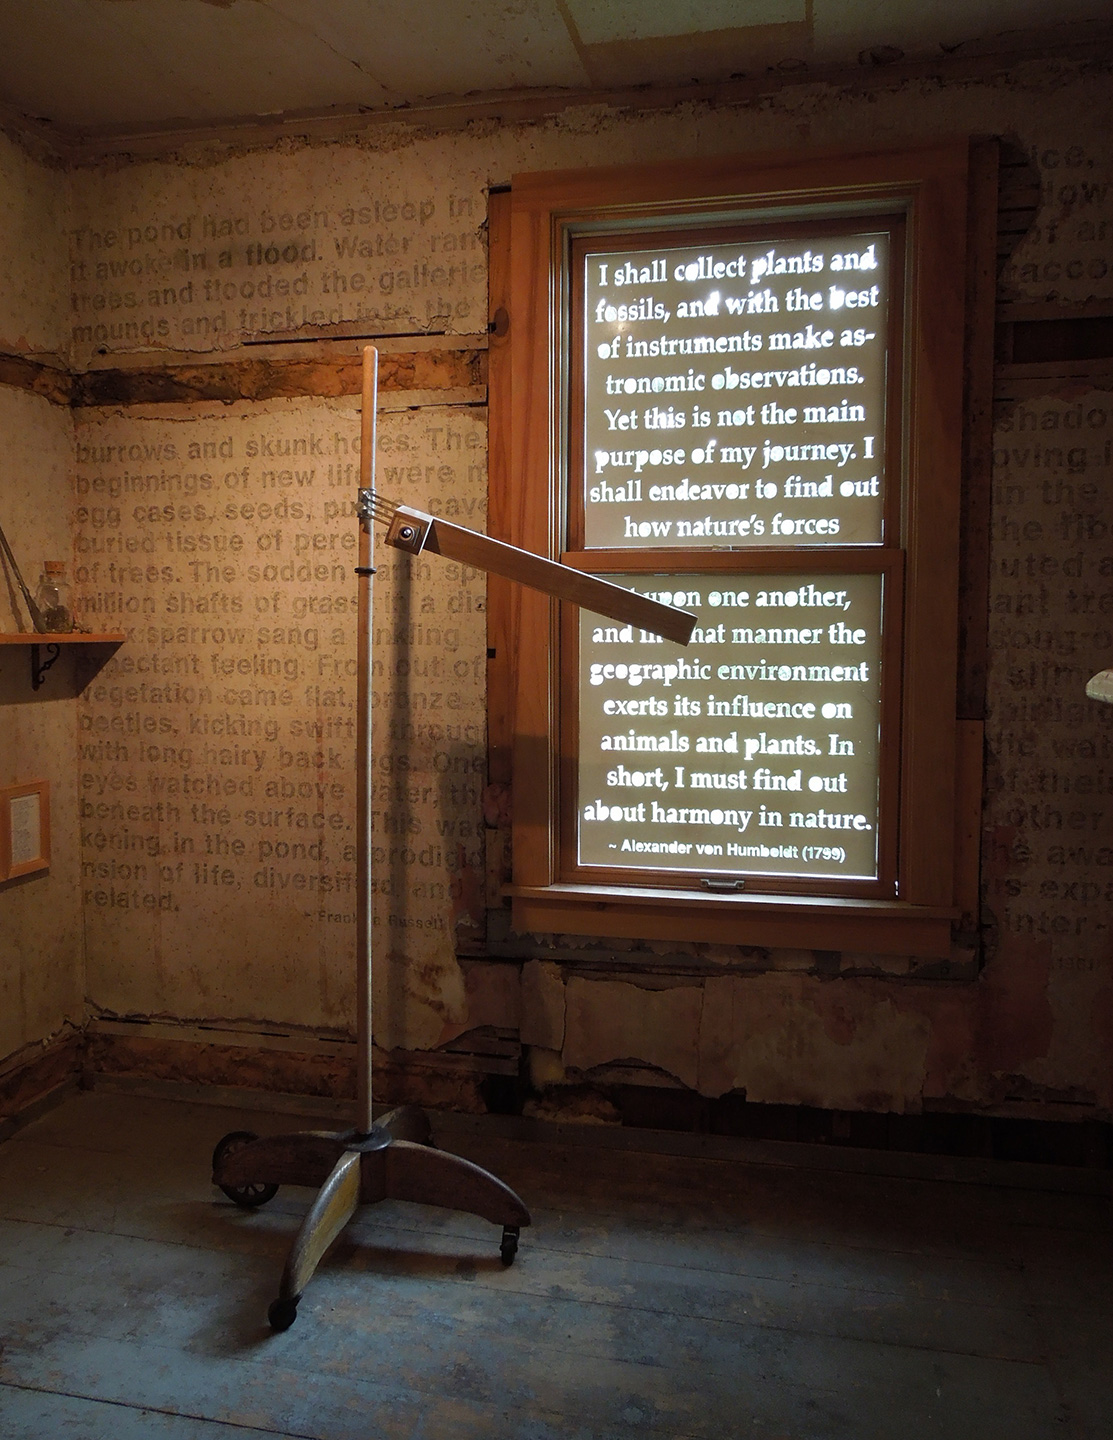 The pond had been asleep in
it awoke in a flood. Water ran
trees and flooded the gallerie
mounds and trickled into the
burrows and skunk holes. The
beginnings of new life were m
egg cases, seeds, pu cave
buried tissue of pere
of trees. The sodden earth sp
million shafts of grass in a dis
fox sparrow sang a inkling
expectant feeling. From out of
vegetation came flat, bronze
beetles, kicking swift through
with long hairy back legs. One
eyes watched above water, th
beneath the surface. This was
kening in the pond, a prodigio
nsion of life, diversified, and
related.
~ Franklin Russell
I shall collect plants and
fossils, and with the best
of instruments make as-
tronomic observations.
Yet this is not the main
purpose of my journey. I
shall endeavor to find out
how nature's forces
upon one another,
and in hat manner the
geographic environment
exerts its influence on
animals and plants. In
short, I must find out
about harmony in nature.
~ Alexander von Humboldt (1799)
ice,
low
of an
racco
shado
oving
in the
the fib
uted a
ant tro
song o
slim
of their
other
he awa
us expa
inter-